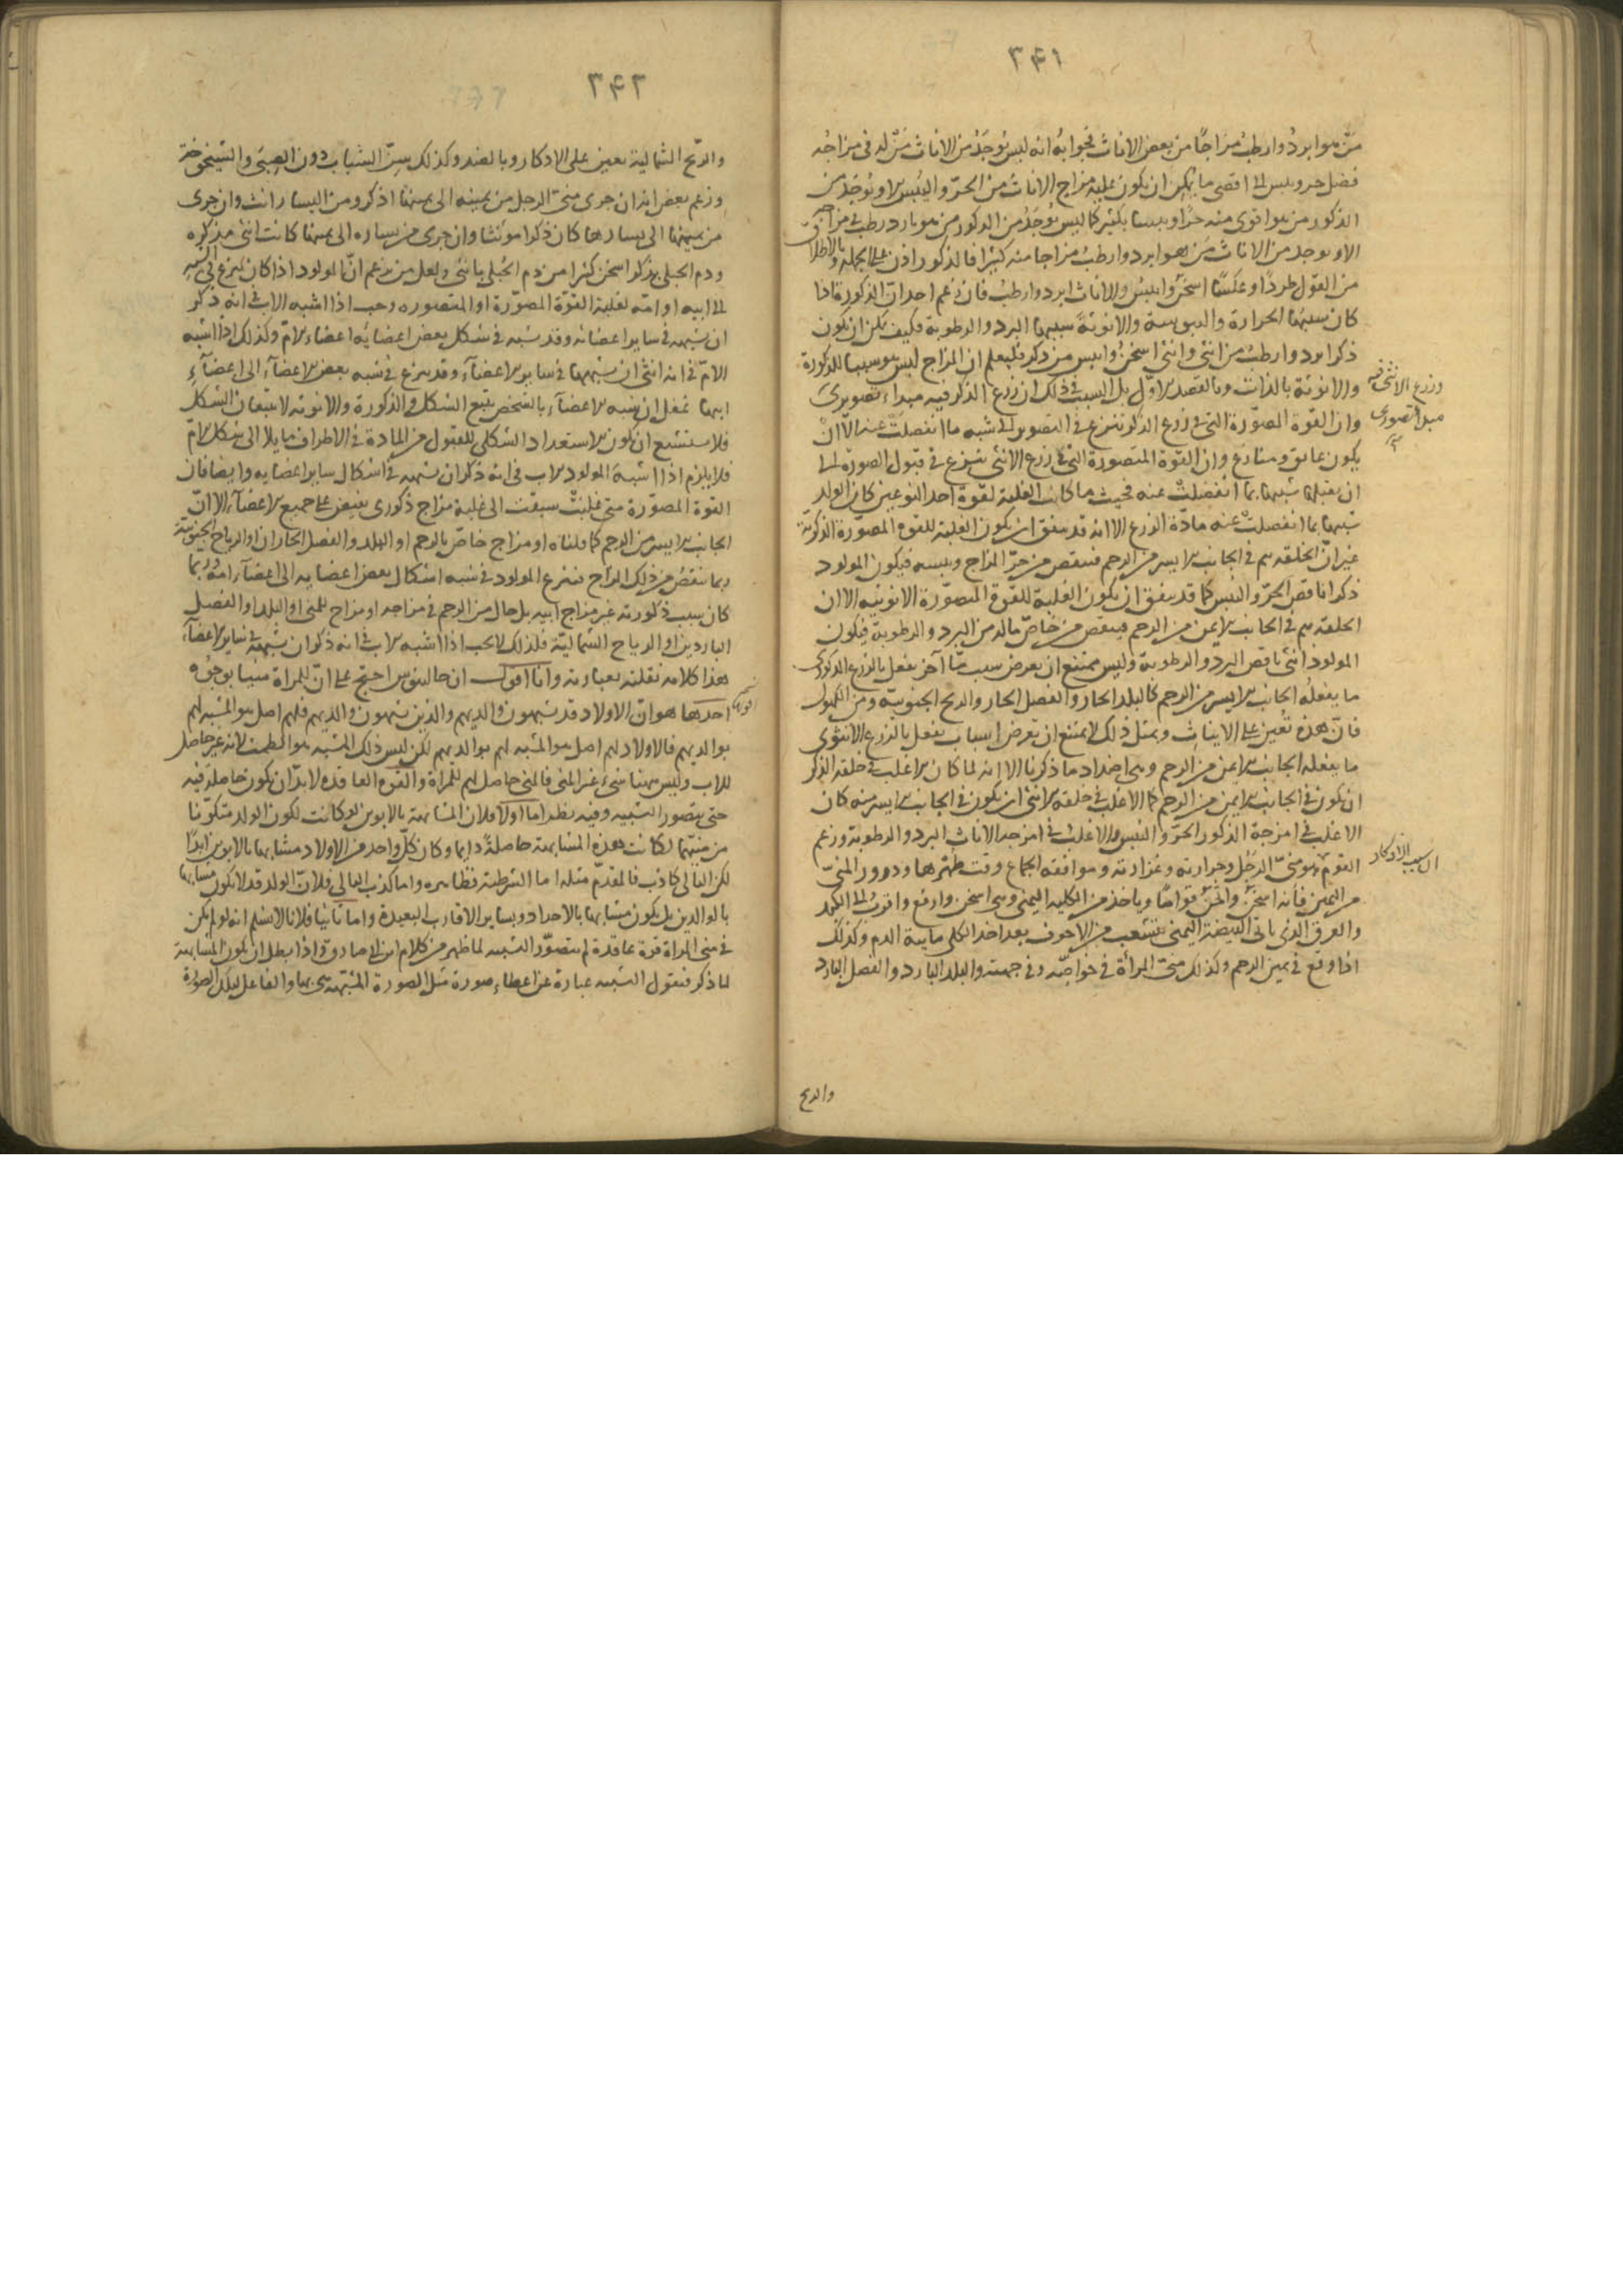 ٣٤١
من هو ابرد وارطب مزاجا من بعض الاناث فجوابه انه ليس يوجد من الاناث من له فى مزاجه
فضل حر ويبس الى اقصى ما يمكن ان يكون عليه مزاج الاناث من الحر واليبس الا ويوجد من
الذكور من هو اقوى منه حرا ويبسا بكثير كما ليس يوجد من الذكور من هو بارد رطب فى مزاجه
الا ويوجد من الاناث من هو ابرد وارطب مزاجا منه كثيرا فالذكور اذن على الجملة وبالاطلاق
من القول طردا وعكسا اسخن وايبس والاناث ابرد وارطب فان زعم احد ان الذكورة اذا
كان سببها الحرارة واليبوسة والانوثة سببها البرد والرطوبة فكيف يمكن ان يكون
ذكر ابرد وارطب من انثى وانثى اسخن وايبس من ذكر فليعلم ان المزاج ليس هو سببا للذكورة
والانوثة بالذات وبالقصد الاول بل السبب فى ذلك ان زرع الذكر فيه مبداء تصويرى
وزرع الانثى فيه
مبدا تصورى
وان القوة المصورة التى فى زرع الذكر تنزع فى التصوير الى شبه ما انفصلت عنه الا ان
يكون عائق ومنازع وان القوة المتصورة التى فى زرع الانثى تنزع فى قبول الصورة الى
ان يقبلها شبيها بما انفصلت عنه فحيث ما كانت الغلبة لقوة احد النوعين كان الولد
شبيها بما انفصلت عنه مادة الزرع الا انه قد يتفق ان يكون الغلبة للقوة المصورة الذكرية
غير ان الخلقة تتم فى الجانب الايسر من الرحم فينقص من حر المزاج ويبسه فيكون المولود
ذكرا ناقص الحر واليبس كما قد يتفق ان يكون الغلبة للقوة المتصورة الانوثية الا ان
الخلقة تتم فى الجانب الايمن من الرحم فينقص من خاص ماله من البرد والرطوبة فيكون
المولود انثى ناقص البرد والرطوبة وليس يمتنع ان يعرض سبب ما آخر يفعل بالزرع الذكورى
ما يفعله الجانب الايسر من الرحم كالبلد الحار والفصل الحار والريح الجنوبية وسن الكهول
فان هذه تعين على الايناث وبمثل ذلك لا يمتنع ان يعرض اسباب يفعل بالزرع الانثوى
ما يفعله الجانب الايمن من الرحم وهى اضداد ما ذكرنا الا انه لما كان الاغلب فى خلقة الذكر
ان يكون فى الجانب الايمن من الرحم كما الاغلب فى خلقة الانثى ان يكون فى الجانب الايسر منه كان
الاغلب فى امزجة الذكور الحر واليبس والاغلب فى امزجة الاناث البرد والرطوبة وزعم
القوم هو منى الرجل وحرارته وغزارته وموافقة الجماع وقت طهرها ودرور المنى
ان سبب الاذكار
من اليمين فانه اسخن واثخن قواما وياخذ من الكلية اليمنى وهى اسخن وارفع واقرب الى الكبد
والعرق الذى ياتى البيضة اليمنى يتشعب من الاجوف بعد اخذ الكلى مايية الدم وكذلك
اذا وقع فى يمين الرحم وكذلك منى المرأة فى خواصه وفى جهته والبلد البارد والفصل البارد
والريح
٣٤٢
والريح الشمالية يعين على الاذكار وبالضد وكذلك سن الشباب دون الصبى والشيخوخة
وزعم بعض انه ان جرى منى الرجل من يمينه الى يمينها اذكر ومن اليسار انث وان جرى
من يمينها الى يسارها كان ذكرا مونثا وان جرى من يساره الى يمينها كانت انثى مذكره
ودم الحبلى بذكر اسخن كثيرا من دم الحبلى بانثى ولعل من يزعم ان المولود اذا كان ينزع فى الشبه
الى ابيه او امه لغلبة القوة المصورة او المتصوره وجب اذا اشبه الاب فى انه ذكر
ان يشبهه فى ساير اعضائه وقد يشبه فى شكل بعض اعضايه اعضاء الام وكذلك اذا اشبه
الام فى انه انثى ان يشبهها فى ساير الاعضآء وقد ينزع فى شبه بعض الاعضآء الى اعضآء
ابيها غفل ان شبه الاعضآء بالشخص يتبع الشكل والذكورة والانوثة لا يتبعان الشكل
فلا يستشنع ان يكون الاستعداد الشكلى للقبول من المادة فى الاطراف مايلا الى شكل الام
فلا يلزم اذا اشبه المولود الاب فى انه ذكر ان يشبهه فى اشكال ساير اعضايه وايضا فان
القوة المصورة متى غلبت سبقت الى غلبة مزاج ذكورى يفيض على جميع الاعضآء الا ان
الجانب الايسر من الرحم كما قلناه او مزاج خاص بالرحم او البلد والفصل الحاران او الرياح الجنوبية
ربما ينقص من ذلك المزاج فينزع المولود فى شبه اشكال بعض اعضايه الى اعضآء امه وربما
كان سبب ذكورته غير مزاج ابيه بل حال من الرحم فى مزاجه او مزاج للمنى او البلد او الفصل
الباردين او الرياح الشمالية فلذلك لا يجب اذا اشبه الاب فى انه ذكر ان يشبهه فى ساير الاعضآء
هذا كلامه نقلته بعبارته وانا اقول ان جالينوس احتج على ان للمراة منيا بوجوه
احدها هو ان الاولاد قد يشبهون والديهم والذين يشبهون والديهم فلهم اصل هو المشبه لهم
بوالديهم فالاولاد لهم اصل هو المشبه لهم بوالديهم لكن ليس ذلك المشبه هو الطمث لانه غير حاصل
للاب وليس ههنا شىء غير المنى فالمنى حاصل لهم للمراة والقوه العاقده لا بد ان يكون حاصلة فيه
حتى يتصور التشبيه وفيه نظر اما اولا فلان المشابهة بالابوين لو كانت لكون الولد متكونا
من منيهما لكانت هذه المشابهة حاصلة دايما وكان كل واحد من الاولاد مشابها بالابوين ابدا
لكن التالى كاذب فالمقدم مثله اما الشرطية فظاهره واما كذب التالى فلان الولد قد لا يكون مشابها
بالوالدين بل يكون مشابها بالاجداد وبساير الاقارب البعيدة واما ثانيا فلانا لا نسلم انه لو لم يكن
فى منى المراة قوة عاقدة لم يتصور التشبيه لما ظهر من كلام ابن ابى صادق واذا بطل ان يكون المشابهة
لما ذكر فنقول التشبيه عبارة عن اعطاء صورة مثل الصورة المشبهة هى بها والفاعل لتلك الصورة